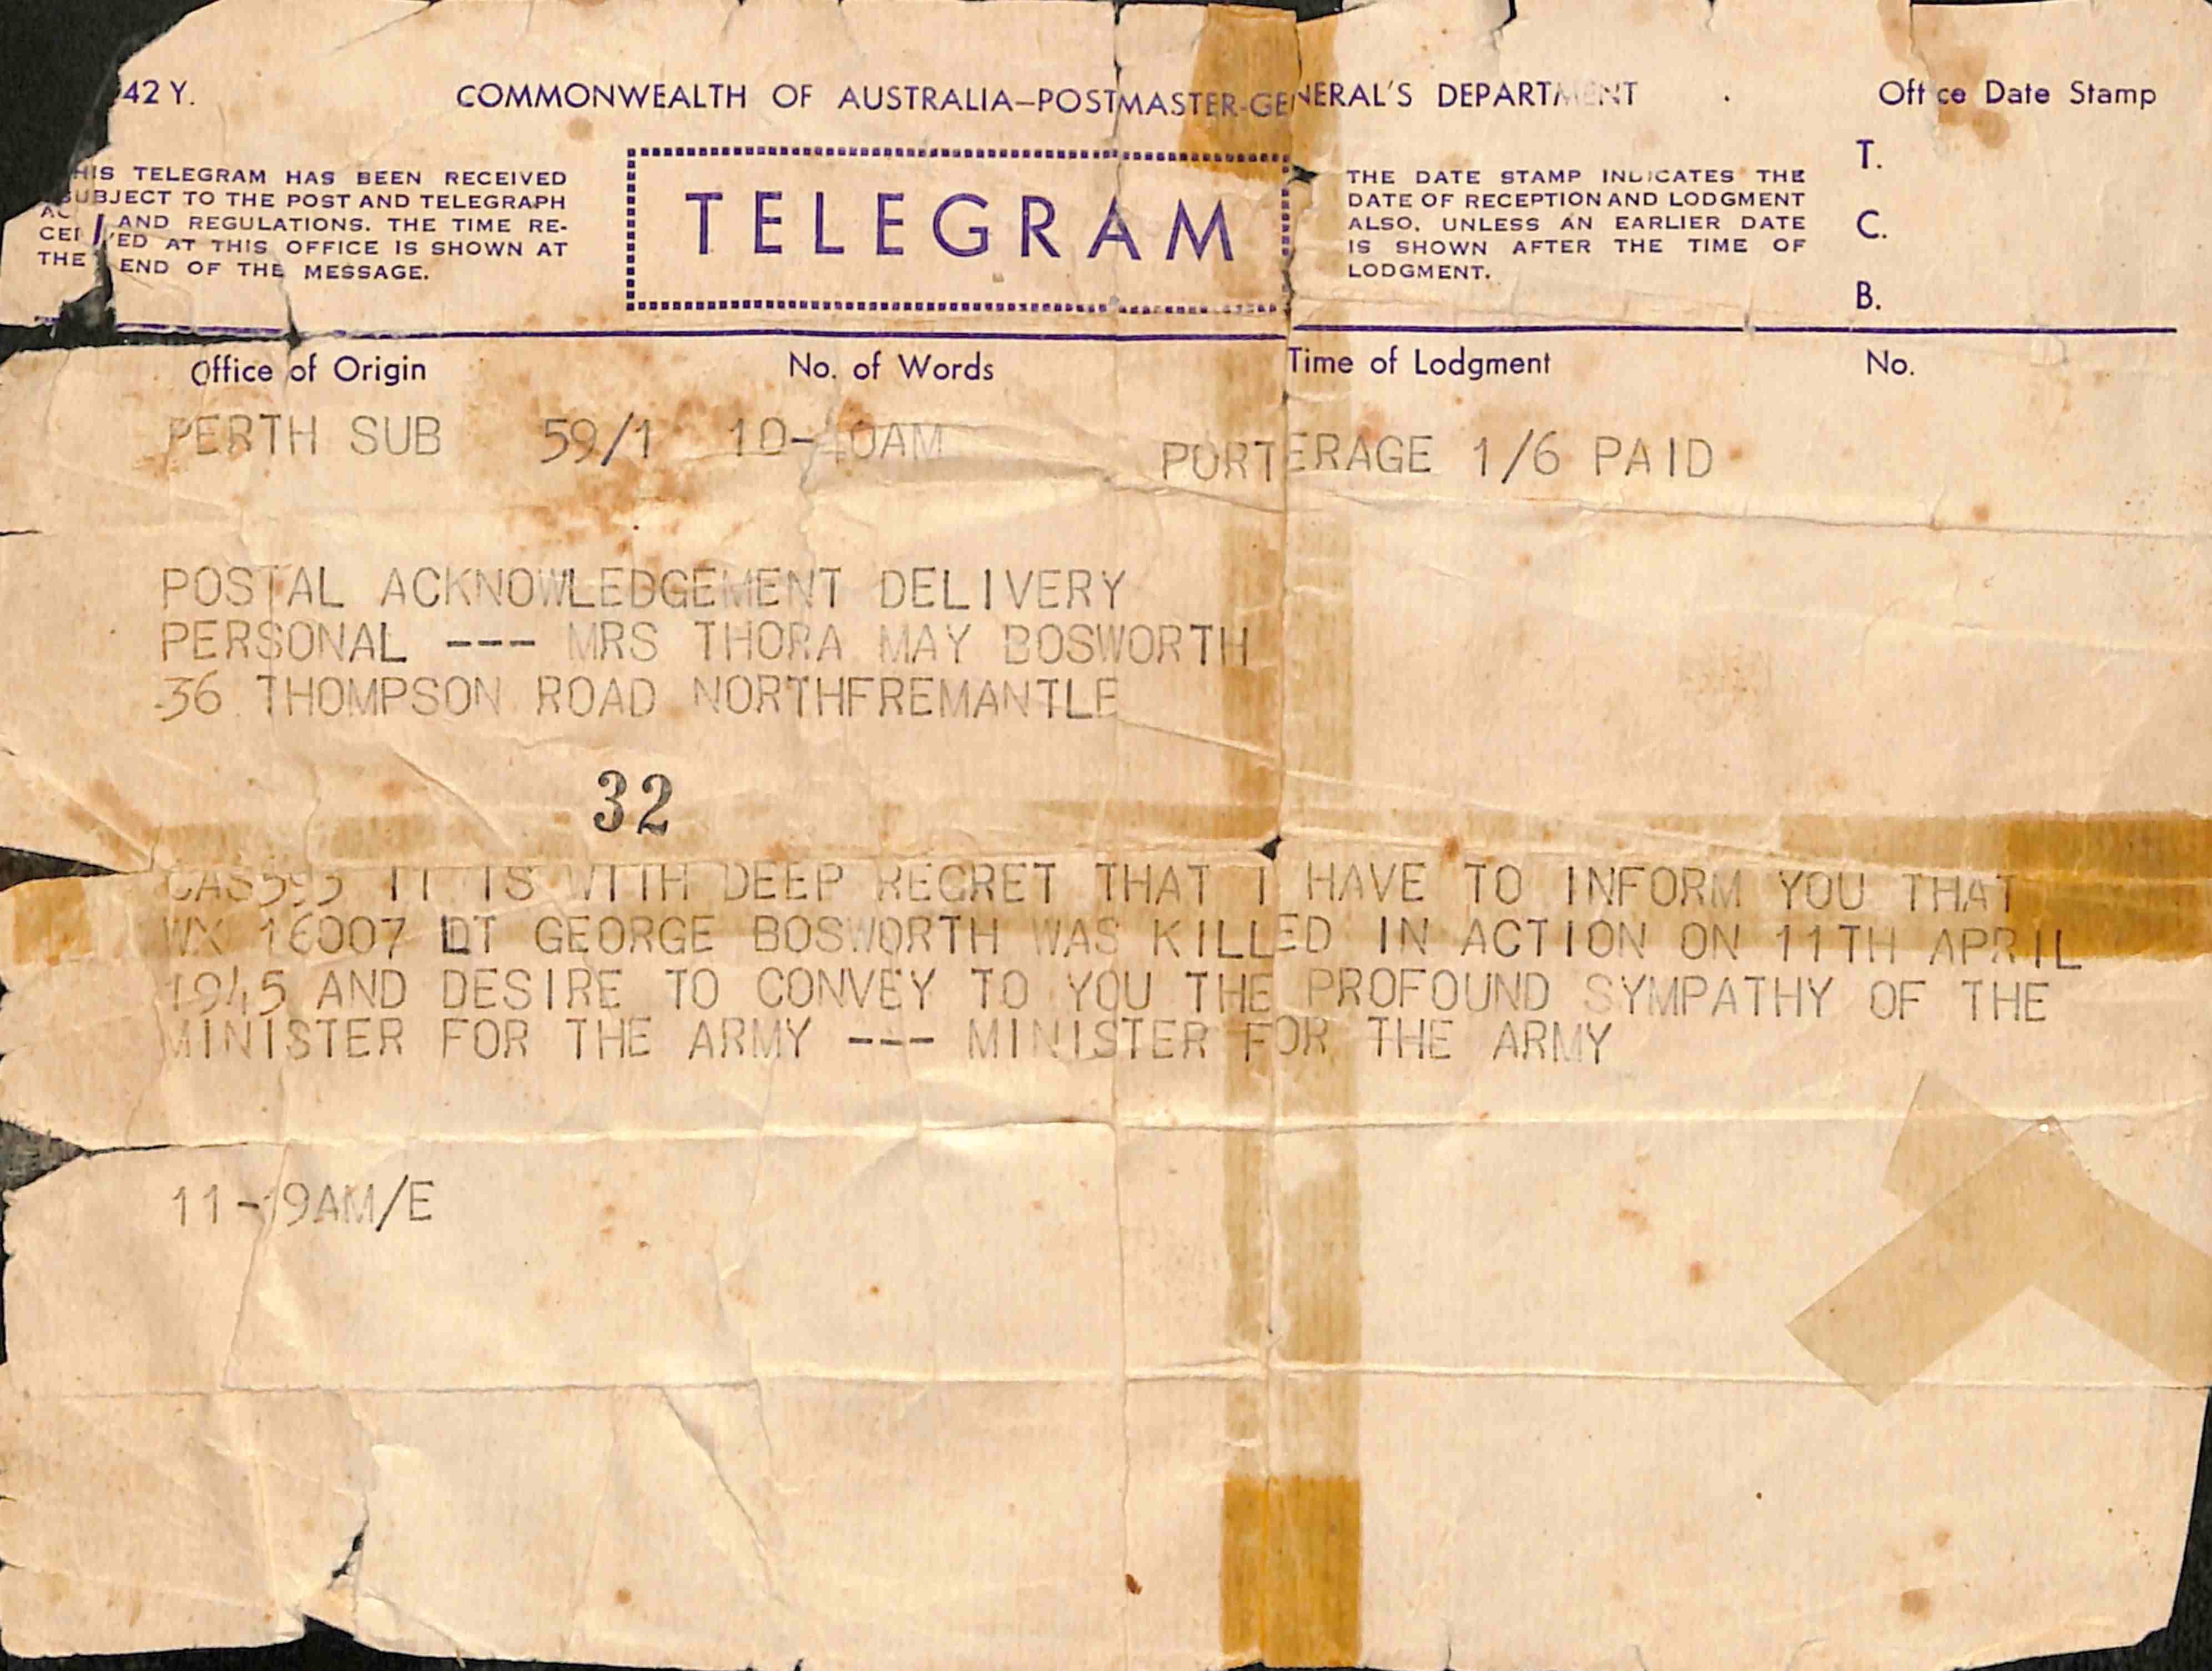 42 Y.
COMMONWEALTH OF AUSTRALIA—POSTMASTER-GENERAL'S DEPARTMENT
Office Date Stamp
HIS TELEGRAM HAS BEEN RECEIVED
SUBJECT TO THE POST AND TELEGRAPH
AC AND REGULATIONS. THE TIME RE-
CEIVED AT THIS OFFICE IS SHOWN AT
THE END OF THE MESSAGE.
TELEGRAM
THE DATE STAMP INDICATES THE
DATE OF RECEPTION AND LODGMENT
ALSO, UNLESS AN EARLIER DATE
IS SHOWN AFTER THE TIME OF
LODGMENT.
T.
C.
B.
Office of Origin No. of Words Time of Lodgment No.
PERTH SUB 59/1 10-40AM PORTERAGE 1/6 PAID
POSTAL ACKNOWLEDGEMENT DELIVERY
PERSONAL --- MRS THORA MAY BOSWORTH
36 THOMPSON ROAD NORTHFREMANTLE
32
CAS593 IT IS WITH DEEP REGRET THAT I HAVE TO INFORM YOU THAT
WX 16007 LT GEORGE BOSWORTH WAS KILLED IN ACTION ON 11TH APRIL
1945 AND DESIRE TO CONVEY TO YOU THE PROFOUND SYMPATHY OF THE
MINISTER FOR THE ARMY --- MINISTER FOR THE ARMY
11-19AM/E